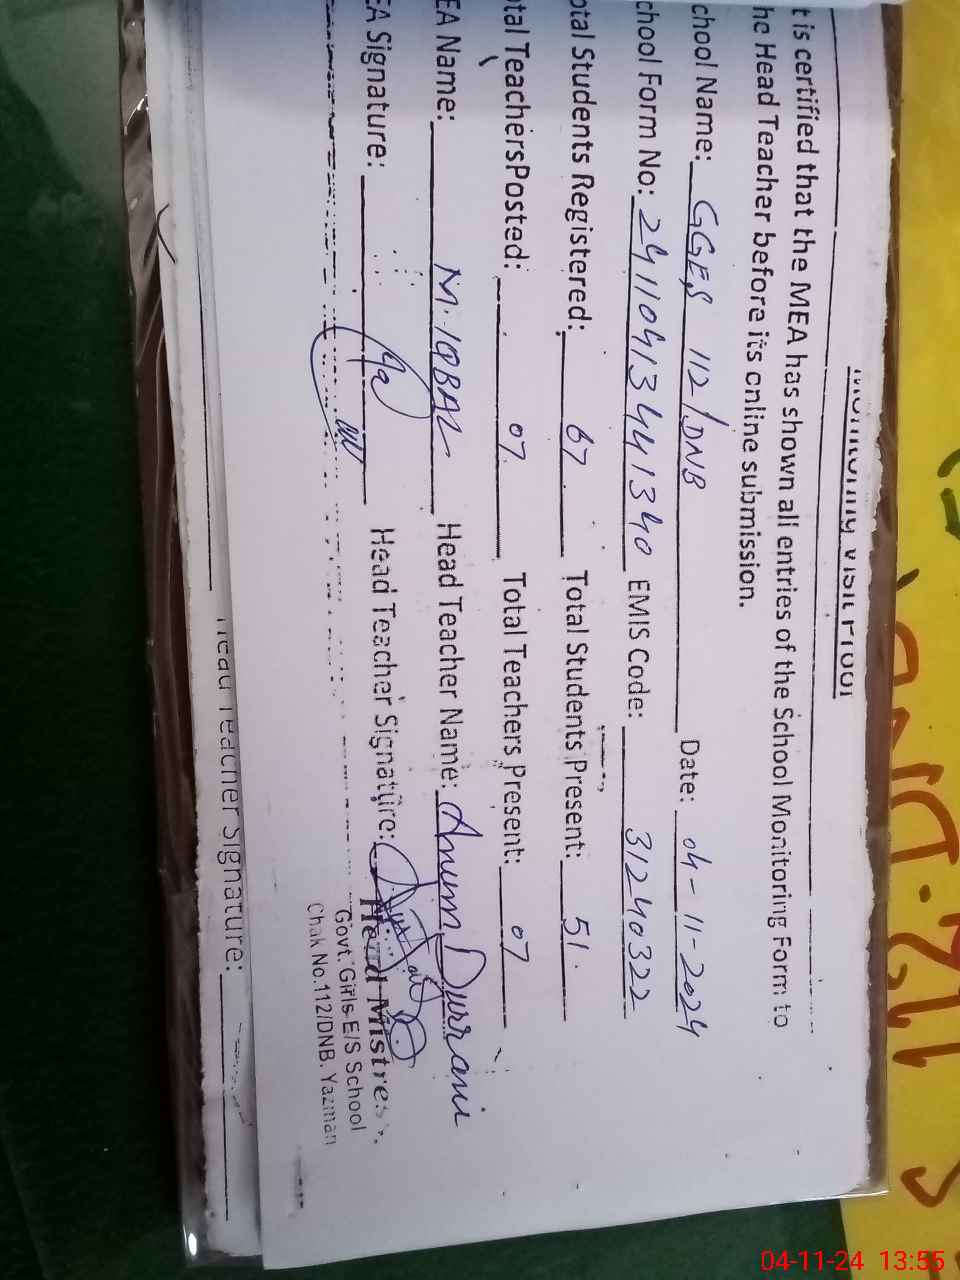 Monitoring Visit Proof
t is certified that the MEA has shown all entries of the School Monitoring Form to
he Head Teacher before its online submission.
chool Name: GGES 112/DNB Date: 04-11-2024
chool Form No: EMIS Code: 31240322
otal Students Registered: 67 Total Students Present: 51
otal TeachersPosted: 07 Total Teachers Present: 07
EA Name: M. IQBAL Head Teacher Name: Anum Durrani
EA Signature: Head Teacher Signature:
Head Mistress.
Govt. Girls E/S School
Chak No.112/DNB. Yazman
Head Teacher Signature:
04-11-24 13:55